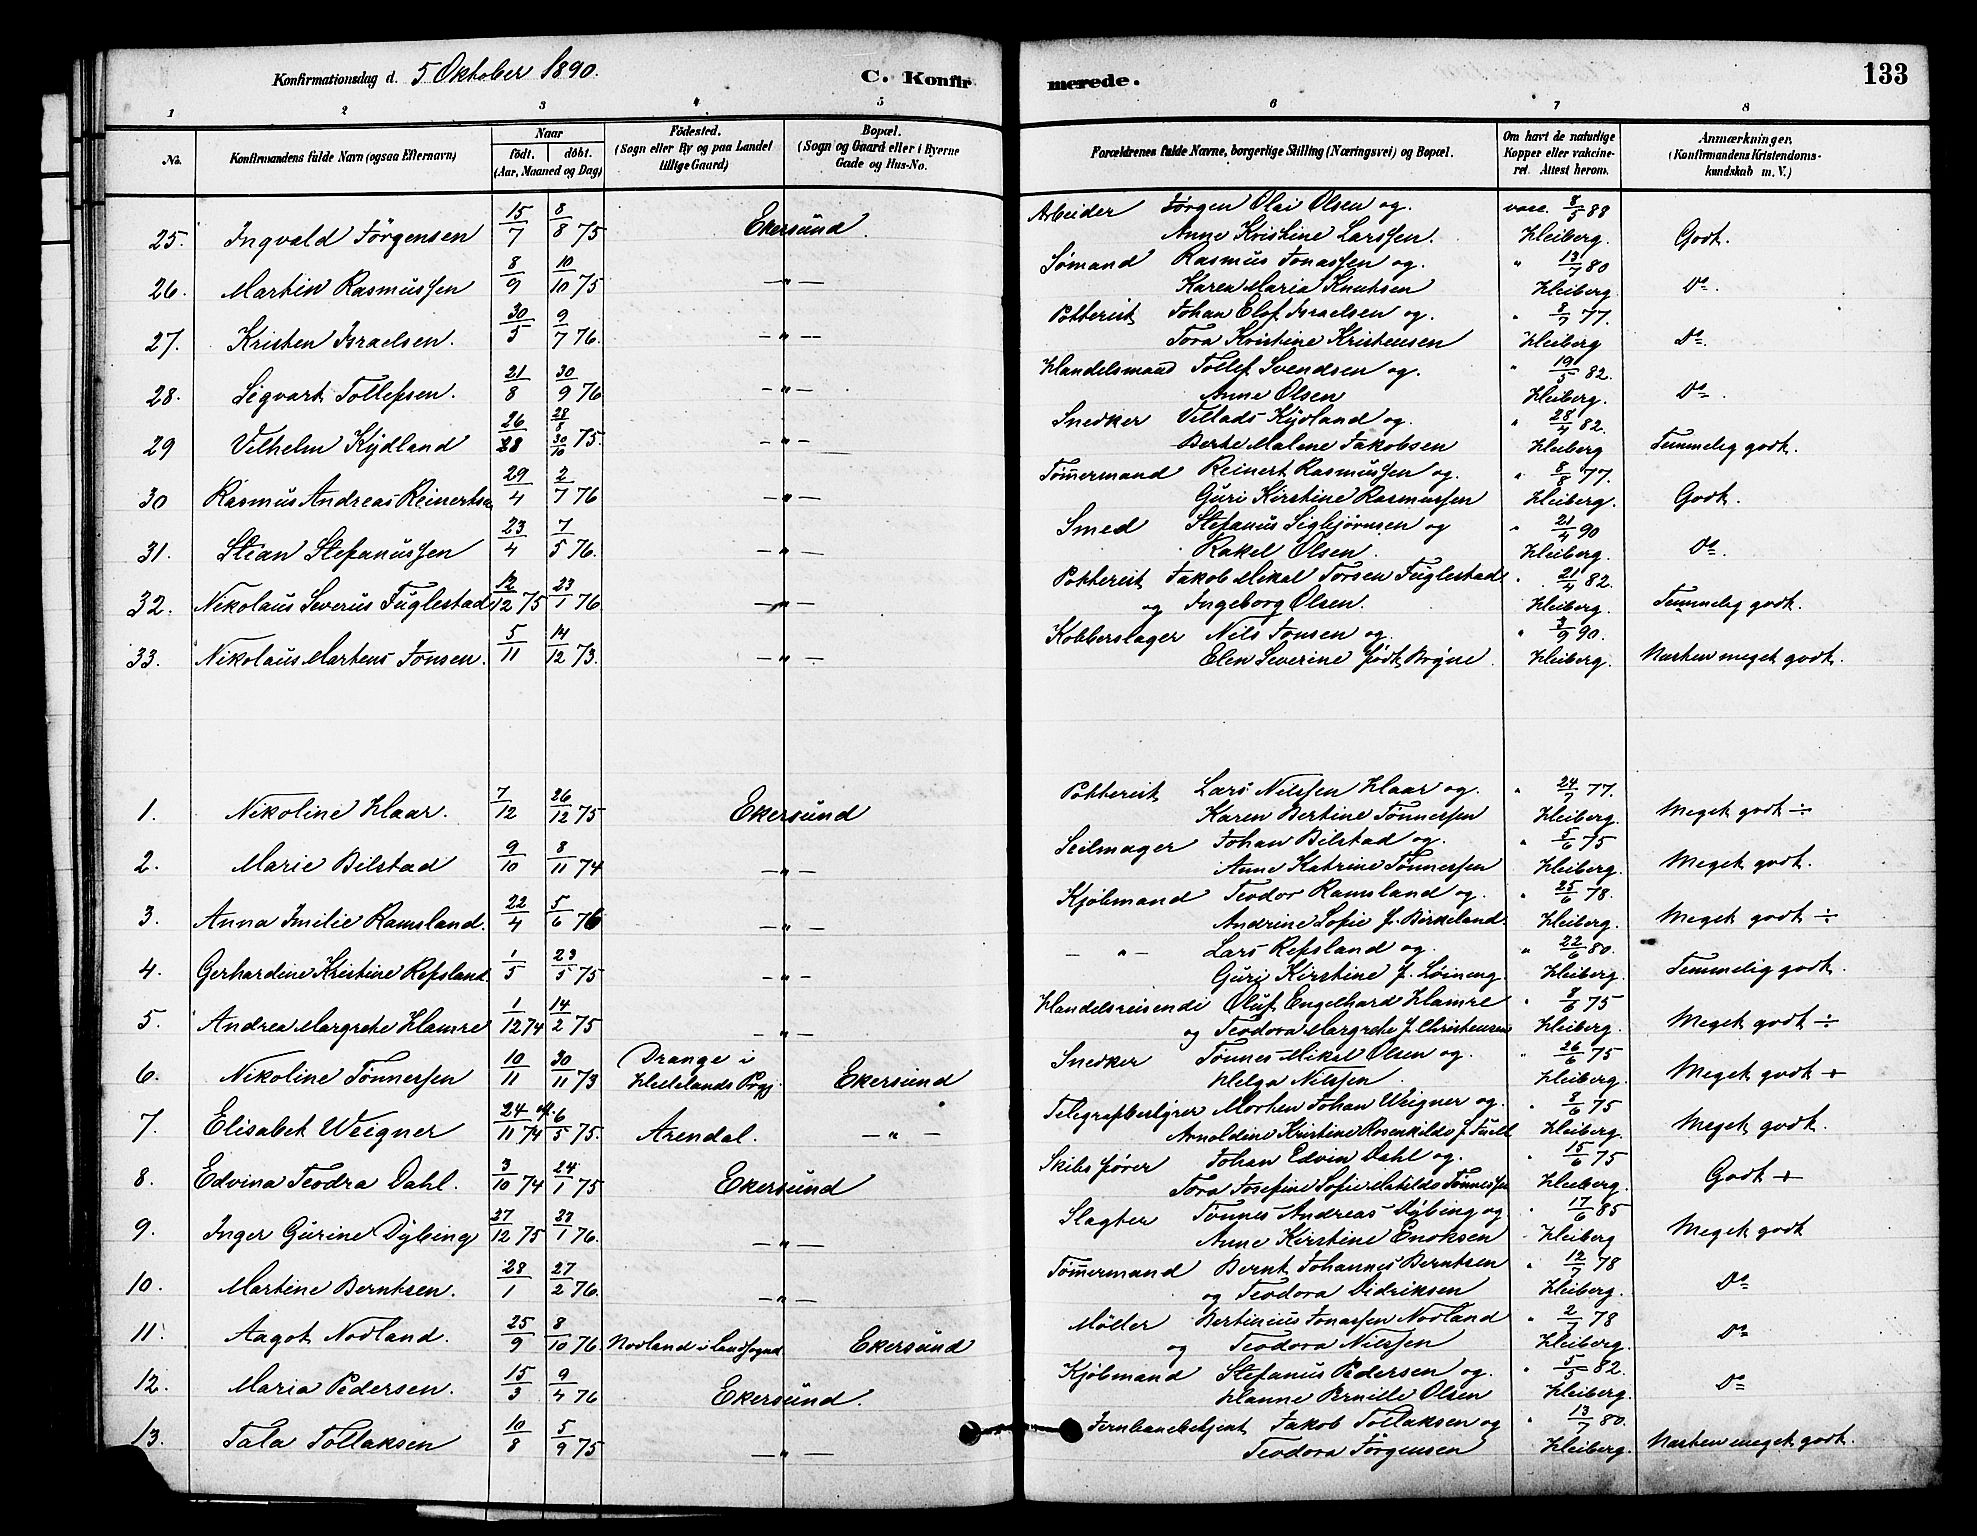 Konfirmationsdag d. 5 Oktober 1890.
C. Konfirmerede.
133
1 2 3 4 5 6 7 8
No.
Konfirmandens fulde Navn (ogsaa Efternavn)
Naar
födt. döbt.
(Aar, Maaned og Dag)
Födested.
(Sogn eller By og paa Landet tillige Gaard)
Bopæl.
(Sogn og Gaard eller i Byerne Gade og Hus-No.
Forældrenes fulde Navne, borgerlige Stilling (Næringsvei) og Bopæl.
Om havt de naturlige Kopper eller vakcineret. Attest herom.
Anmærkninger,
(Konfirmandens Kristendomskundskab m. V.)
25. Ingvald Jörgensen 15/7 8/8 75 Ekersund Arbeider Jörgen Olai Olsen og vacc. 8/5 88
Anne Kristine Larssen. Heiberg. Godt.
26. Martin Rasmussen 8/9 10/10 75 — " — Sømand Rasmus Jonassen og " 13/7 80
Karen Maria Knutsen Heiberg Do.
27. Kristen Israelsen. 30/5 9/7 76. — " — Potterist Johan Elof Israelsen og " 8/7 77.
Tora Kristine Kristensen Heiberg Do.
28. Sigvart Tollefsen. 21/8 30/9 76 — " — Handelsmand Tollef Svendsen og " 19/5 82.
Anne Olsen Heiberg. Do.
29 Vilhelm Kydland 26/28 28/8 30/10 75. — " — Snedker Villads Kydland og " 28/4 82.
Berte Malene Jakobsen Heiberg Temmelig godt.
30 Rasmus Andreas Reinertsen 29/4 2/7 76 — " — Tømmermand Reinert Rasmussen og " 8/8 77.
Guri Kirstine Rasmussen Heiberg. Godt.
31. Stian Stefanussen 23/4 7/5 76. — " — Smed Stefanus Sigbjørnsen og " 21/4 90
Rakel Olsen. Heiberg. Do.
32. Nikolaus Severus Fuglestad 12/12 75 23/1 76 — " — Potterist Jakob Mikal Torsen Fuglestad " 21/4 82.
og Ingeborg Olsen. Heiberg. Temmelig godt.
33. Nikolaus Martens Jonsen. 5/11 14/12 73. — " — Kobberslager Nils Jonsen og " 3/9 90.
Elen Severine født Bryne. Heiberg. Næsten meget godt.
1. Nikoline Haar. 7/12 26/12 75 Ekersund Potterist Lars Nilssen Haar og. " 24/7 77.
Karen Bertine Tönnessen Heiberg. Meget godt ÷
2. Marie Bilstad 9/10 8/11 74 — " — Seilmager Johan Bilstad og. " 5/6 75
Anne Katrine Tönnessen Heiberg. Meget godt.
3. Anna Emilie Ramsland. 22/4 5/6 76 — " — Kjöbmand Teodor Ramsland og " 25/6 78.
Andrine Sofie f. Birkeland Heiberg. Meget godt ÷
4. Gerhardine Kristine Refsland. 1/5 23/5 75 — " — — " — Lars Refsland og. " 22/6 80.
Guri Kirstine f. Løining Heiberg. Temmelig godt.
5. Andrea Margrete Hamre 1/12 74 14/2 75 — " — Handelsreisende Oluf Engelhard Hamre " 8/6 75
og Teodora Margrete f. Christensen Heiberg. Meget godt ÷
6. Nikoline Tönnessen 10/11 30/11 73 Drange i Helleland Prgj. Ekersund Snedker Tönnes Mikal Olsen og. " 26/6 75
Helga Nilssen. Heiberg. Meget godt +
7. Elisabet Weigner 24/11 74 6/5 75. Arendal. — " — Telegrafbestyrer Morten Johan Weigner og. " 8/6 75
Arnoldine Kristine Rosenkilde f. Heiberg. Meget godt.
8. Edvina Teodra Dahl. 3/10 74 24/1 75 Ekersund Skibsfører Johan Edvin Dahl og. " 15/6 75
Tora Josefine Sofie Matilde Tönnessen Heiberg. Godt +
9. Inger Gurine Dybing 27/12 75 23/1 76. — " — Slagter Tönnes Andreas Dybing og " 17/6 85
Anne Kirstine Enoksen Heiberg Meget godt
10. Martine Berntsen. 28/1 27/2 76. — " — Tömmermand Bernt Johannes Berntsen " 12/7 78
og Teodora Didriksen Heiberg. Do
11. Aagot Nodland. 25/9 8/10 76 Nodland i Landsogn Ekersund Møller Bertinius Jonassen Nodland " 2/7 78
og Teodora Nilssen Heiberg. Do
12. Maria Pedersen. 15/3 9/4 76 Ekersund. Kjöbmand Stefanus Pedersen og. " 5/5 82.
Hanne Pernille Olsen Heiberg. Do
13. Tala Tollaksen 10/8 5/9 75 — " — Jernbanebetjent Jakob Tollaksen og " 13/7 80.
Teodora Jörgensen Heiberg. Næsten meget godt.